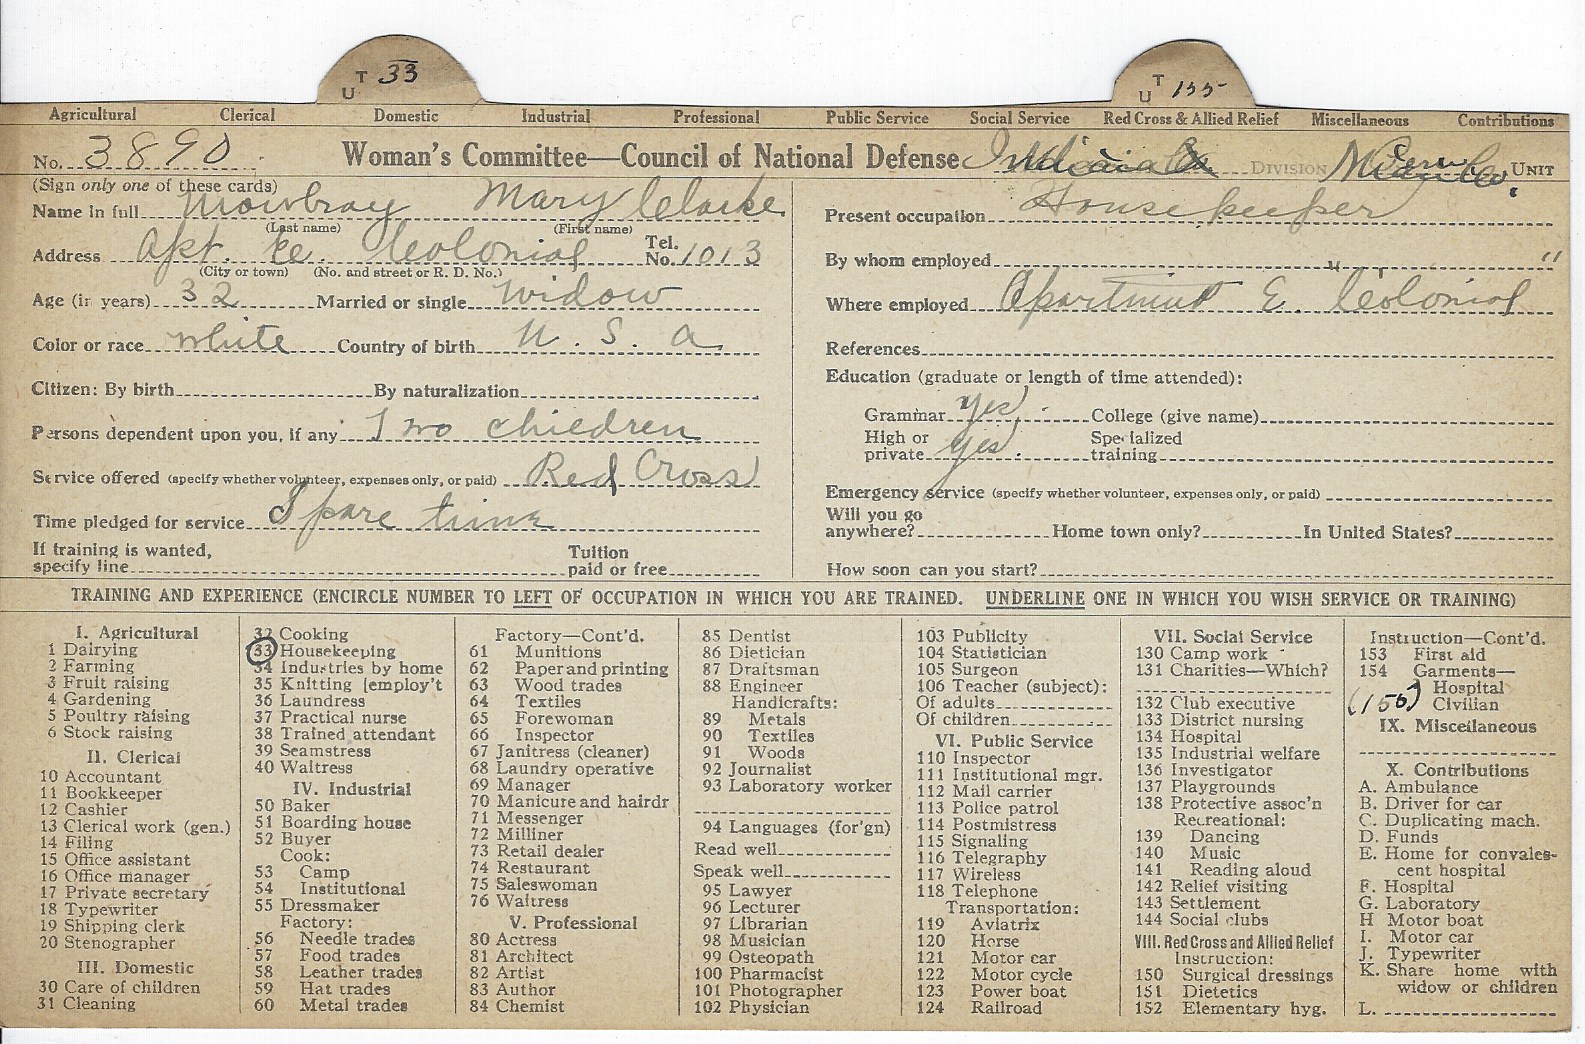 T 33
U
T 155
U
Agricultural Clerical Domestic Industrial Professional Public Service Social Service Red Cross & Allied Relief Miscellaneous Contributions
No. 3890 Woman's Committee—Council of National Defense Indiana DIVISION Miami Co. UNIT
(Sign only one of these cards)
Name in full Mowbray Mary Clarke
(Last name) (First name)
Address Apt. Colonial Tel. No. 1013
(City or town) (No. and street or R. D. No.)
Age (in years) 32 Married or single Widow
Color or race white Country of birth U. S. A
Citizen: By birth By naturalization
Persons dependent upon you, if any Two children
Service offered (specify whether volunteer, expenses only, or paid) Red Cross
Time pledged for service Spare time
If training is wanted, specify line Tuition paid or free
Present occupation Housekeeper
By whom employed " "
Where employed Apartment E. Colonial
References
Education (graduate or length of time attended):
Grammar Yes College (give name)
High or private Yes Specialized training
Emergency service (specify whether volunteer, expenses only, or paid)
Will you go anywhere? Home town only? In United States?
How soon can you start?
TRAINING AND EXPERIENCE (ENCIRCLE NUMBER TO LEFT OF OCCUPATION IN WHICH YOU ARE TRAINED. UNDERLINE ONE IN WHICH YOU WISH SERVICE OR TRAINING)
I. Agricultural
1 Dairying
2 Farming
3 Fruit raising
4 Gardening
5 Poultry raising
6 Stock raising
II. Clerical
10 Accountant
11 Bookkeeper
12 Cashier
13 Clerical work (gen.)
14 Filing
15 Office assistant
16 Office manager
17 Private secretary
18 Typewriter
19 Shipping clerk
20 Stenographer
III. Domestic
30 Care of children
31 Cleaning
32 Cooking
33 Housekeeping
34 Industries by home
35 Knitting [employ't
36 Laundress
37 Practical nurse
38 Trained attendant
39 Seamstress
40 Waitress
IV. Industrial
50 Baker
51 Boarding house
52 Buyer
Cook:
53 Camp
54 Institutional
55 Dressmaker
Factory:
56 Needle trades
57 Food trades
58 Leather trades
59 Hat trades
60 Metal trades
Factory—Cont'd.
61 Munitions
62 Paper and printing
63 Wood trades
64 Textiles
65 Forewoman
66 Inspector
67 Janitress (cleaner)
68 Laundry operative
69 Manager
70 Manicure and hairdr
71 Messenger
72 Milliner
73 Retail dealer
74 Restaurant
75 Saleswoman
76 Waitress
V. Professional
80 Actress
81 Architect
82 Artist
83 Author
84 Chemist
85 Dentist
86 Dietician
87 Draftsman
88 Engineer
Handicrafts:
89 Metals
90 Textiles
91 Woods
92 Journalist
93 Laboratory worker
94 Languages (for'gn)
Read well
Speak well
95 Lawyer
96 Lecturer
97 Librarian
98 Musician
99 Osteopath
100 Pharmacist
101 Photographer
102 Physician
103 Publicity
104 Statistician
105 Surgeon
106 Teacher (subject):
Of adults
Of children
VI. Public Service
110 Inspector
111 Institutional mgr.
112 Mail carrier
113 Police patrol
114 Postmistress
115 Signaling
116 Telegraphy
117 Wireless
118 Telephone
Transportation:
119 Aviatrix
120 Horse
121 Motor car
122 Motor cycle
123 Power boat
124 Railroad
VII. Social Service
130 Camp work
131 Charities—Which?
132 Club executive
133 District nursing
134 Hospital
135 Industrial welfare
136 Investigator
137 Playgrounds
138 Protective assoc'n
Recreational:
139 Dancing
140 Music
141 Reading aloud
142 Relief visiting
143 Settlement
144 Social clubs
VIII. Red Cross and Allied Relief
Instruction:
150 Surgical dressings
151 Dietetics
152 Elementary hyg.
Instruction—Cont'd.
153 First aid
154 Garments—
Hospital
(155) Civilian
IX. Miscellaneous
X. Contributions
A. Ambulance
B. Driver for car
C. Duplicating mach.
D. Funds
E. Home for convales-
cent hospital
F. Hospital
G. Laboratory
H Motor boat
I. Motor car
J. Typewriter
K. Share home with
widow or children
L.